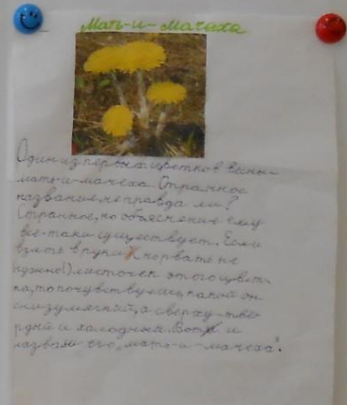 Мать-и-мачеха
Один из первых цветков весны
мать-и-мачеха. Странное
название, не правда ли?
Странное, но объяснение ему
всё-таки существует. Если
взять в руки (срывать не
нужно!) листочек этого цвет-
ка, то почувствуешь, какой он
снизу мягкий, а сверху - твё-
рдый и холодный. Вот и
назвали его "мать-и-мачеха".